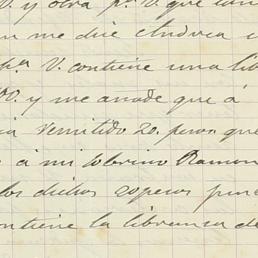 V. y otra pr. V. que
me dice
pra. V. contiene una
y me anade que á
remitido 20. pesos que
á mi sobrino Ramon
los dichos 20 pesos
contiene la libranza de